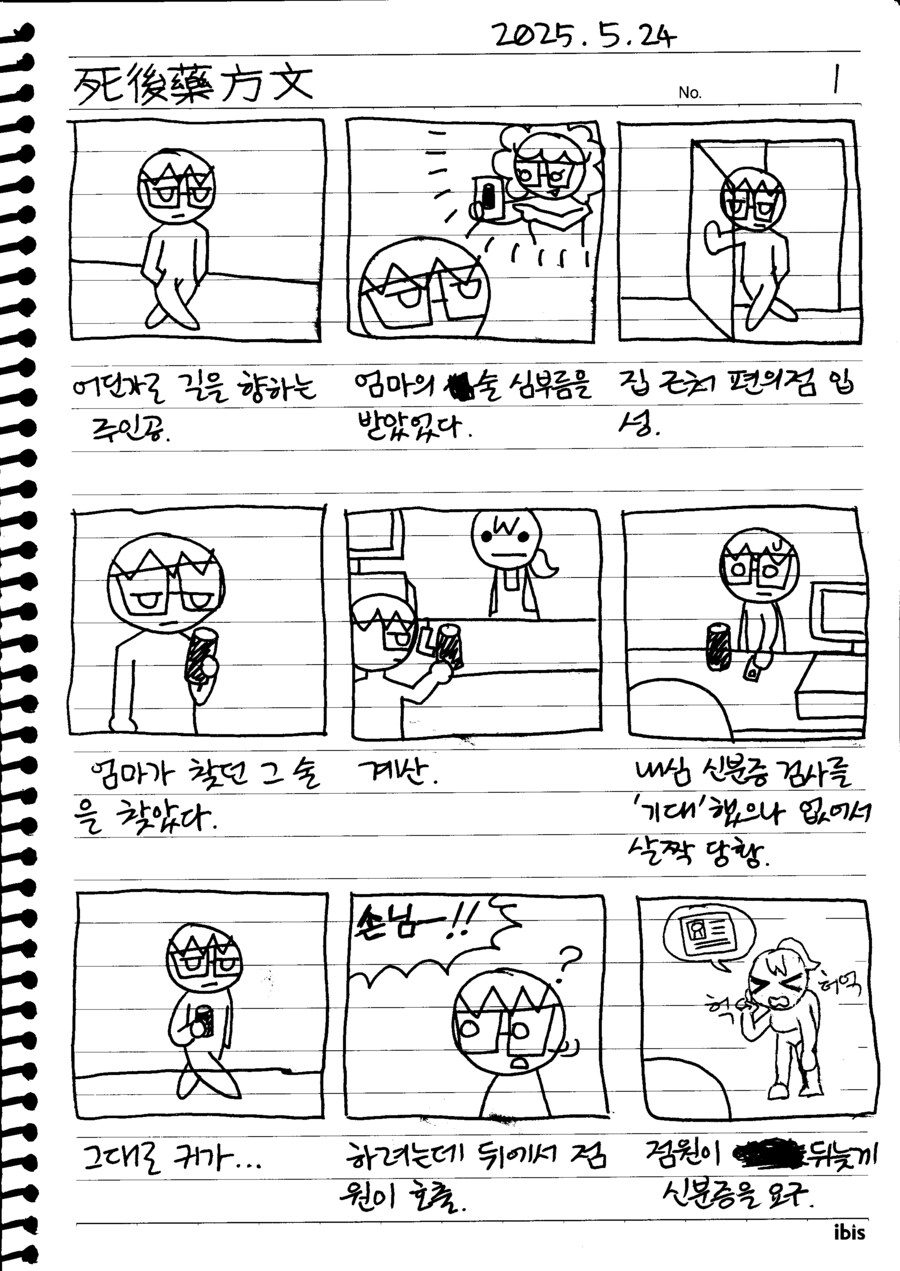 2025.5.24
死後藥方文
No. 1
어딘가로 길을 향하는
주인공.
엄마의 술 심부름을
받았었다.
집 근처 편의점 입
성.
엄마가 찾던 그 술
을 찾았다.
계산.
내심 신분증 검사를
'기대'했으나 없어서
살짝 당황.
손님ㅡ!!
?
헉
허억
그대로 귀가...
하려는데 뒤에서 점
원이 호출.
점원이 뒤늦게
신분증을 요구.
ibis